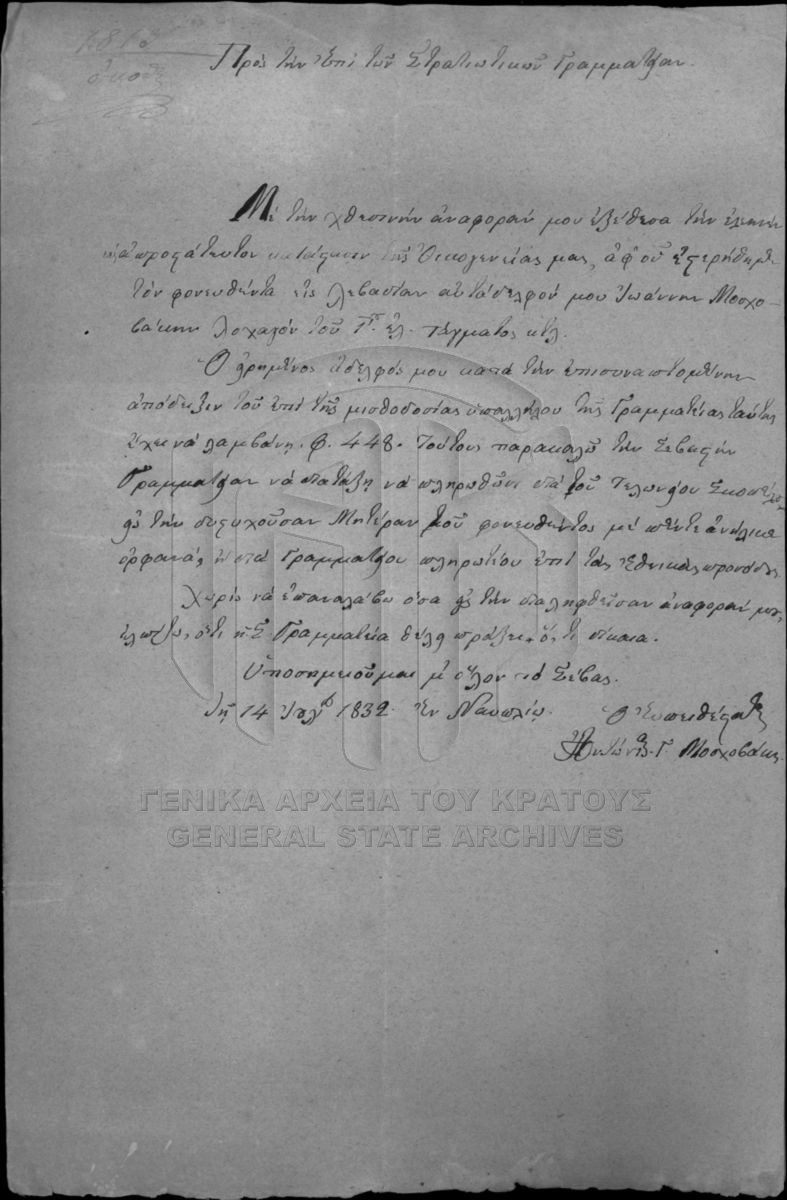 1813
Πρὸς τὴν ἐπὶ τῶν Στρατιωτικῶν Γραμματείαν.
Μὲ τὴν χθεσινὴν ἀναφοράν μου ἐξέθεσα τὴν
ἀπροστάτευτον κατάστασιν τῆς Οἰκογενείας μας, ἀφ' οὗ ἐστερήθημεν
τὸν φονευθέντα εἰς Λεβαδίαν αὐτάδελφόν μου Ἰωάννην Μοσχο-
βάκην Λοχαγὸν τοῦ Γου. ἐλ. τάγματος κτλ.
Ὁ εἰρημένος ἀδελφός μου κατὰ τὴν ἐπισυναπτομένην
ἀπόδειξιν τοῦ ἐπὶ τῆς μισθοδοσίας ὑπαλλήλου τῆς Γραμματείας ταύτης
ἔχει νὰ λαμβάνῃ. φ. 448. Τούτους παρακαλῶ τὴν Σεβαστὴν
Γραμματείαν νὰ διατάξῃ νὰ πληρωθῶσι διὰ τοῦ Τελωνείου Σκοπέλου
εἰς τὴν δυστυχοῦσαν Μητέραν τοῦ φονευθέντος μὲ πέντε ἀνήλικα
ὀρφανά, ἢ διὰ Γραμματίου πληρωτέου ἐπὶ τὰς ἐθνικὰς προσόδους.
Χωρὶς νὰ ἐπαναλάβω ὅσα εἰς τὴν διαληφθεῖσαν ἀναφοράν μου,
ἐλπίζω, ὅτι ἡ Σ. Γραμματεία θέλει πράξει ὅ,τι δίκαιον.
Ὑποσημειοῦμαι μ' ὅλον τὸ Σέβας.
Τῇ 14 Ἰουλίου 1832. Ἐν Ναυπλίῳ. Ὁ εὐπειθέστατος
Ἀντώνιος Γ. Μοσχοβάκης
ΓΕΝΙΚΑ ΑΡΧΕΙΑ ΤΟΥ ΚΡΑΤΟΥΣ
GENERAL STATE ARCHIVES